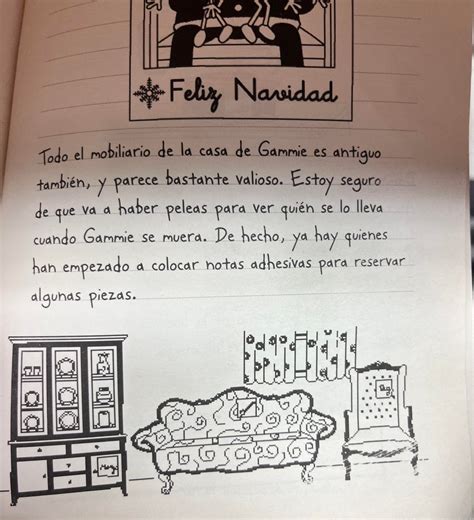 Feliz Navidad
Todo el mobiliario de la casa de Gammie es antiguo
también, y parece bastante valioso. Estoy seguro
de que va a haber peleas para ver quién se lo lleva
cuando Gammie se muera. De hecho, ya hay quienes
han empezado a colocar notas adhesivas para reservar
algunas piezas.